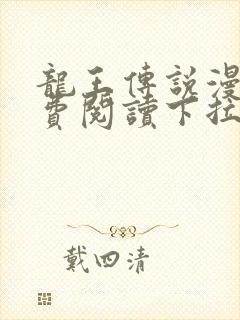 龍王傳說漫
費閱讀下拉
戴四清